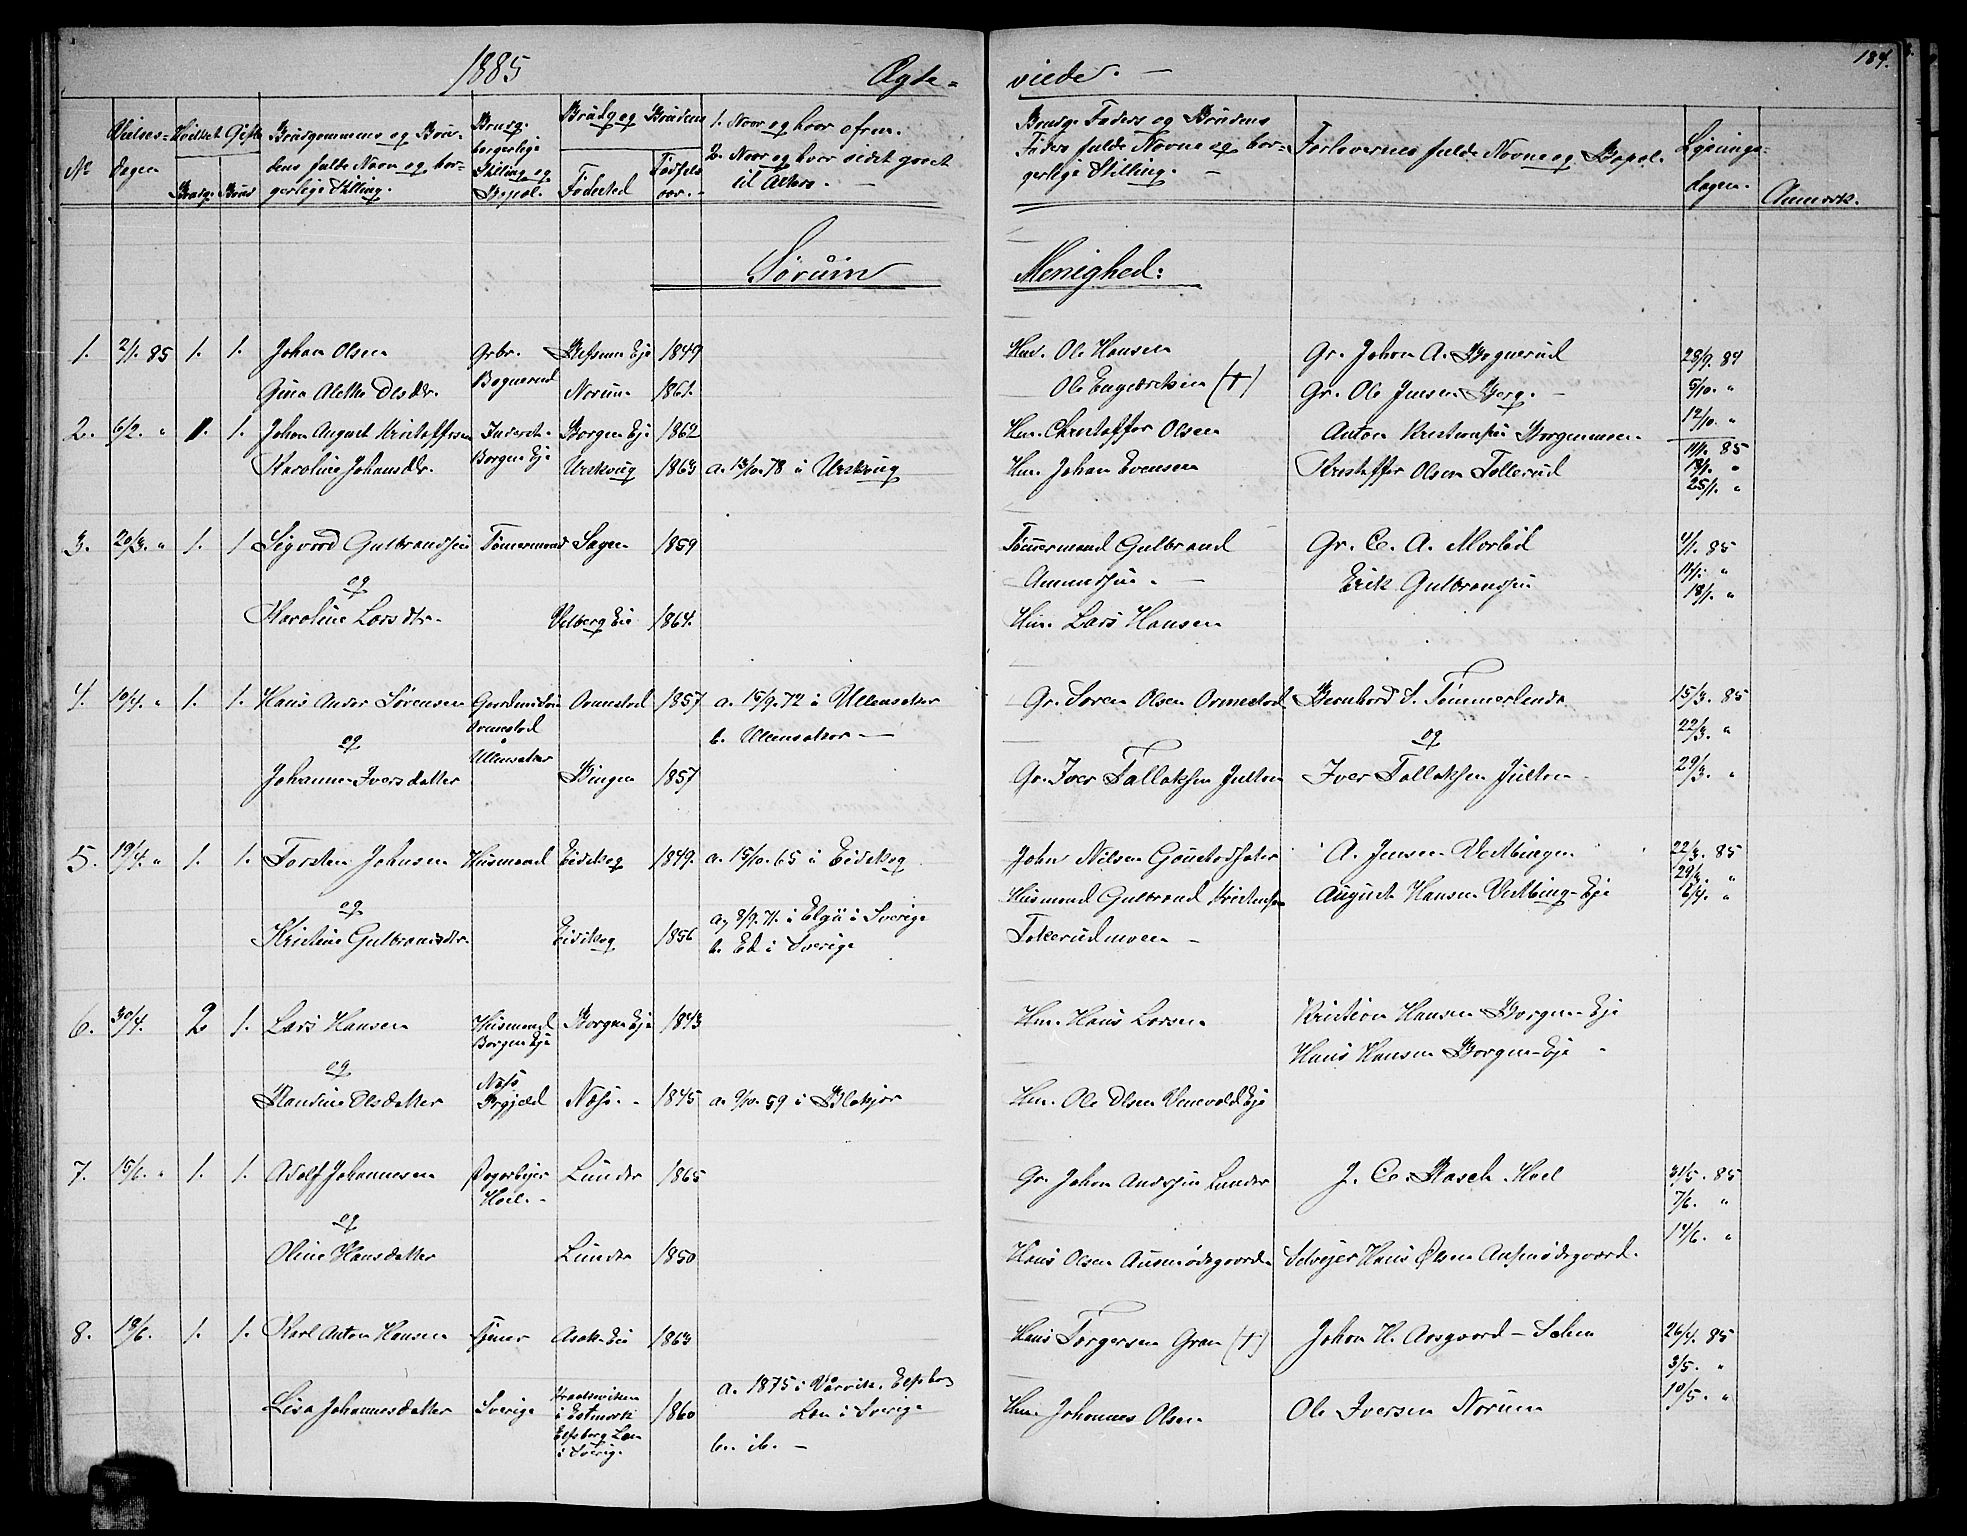 1885 Ægte=
viede. — 184.
No
Vielses=dagen
Hvilket Gifte
Brudg. Brud
Brudgommens og Brudens fulde Navn og borgerlige Stilling.
Brudg. borgerlige Stilling og Bopæl.
Brudg. og Brudens
Fødested
Fødselsaar.
1. Naar og hvor
2. Naar og hvor sidst gaaet til Alters. —
Brudg. Faders og Brudens Faders fulde Navne og borgerlige Stilling. —
Forlovernes fulde Navne og Bopæl.
Lysnings=dagen.
Anmærk.
Sørum Menighed:
1. 2/1. 85 1. 1. Johan Olsen Gbr. Eje 1849 Hmd. Ole Hansen Gr. Johan A. Bognerud 28/9. 84
Gina Olsdr. Bognerud Norum 1861. Ole (†) Gr. Ole Jensen Berg. — 5/10. "
12/10. "
2. 6/2. " 1. 1. Johan August Kristoffersen Inderst. Borgen Eje 1862 Hm. Christoffer Olsen Anton Kristiansen Borgenmoen. 11/1. 85
Karoline Johansdr. Borgen Eje Urskoug 1863 a. 13/10. 78 i Urskoug Hm. Johan Evensen Kristoffer Olsen Tollerud 18/1. "
25/1. "
3. 20/3. " 1. 1 Sigvard Gulbrandsen Tømmermand Sagen 1859 Tømmermand Gulbrand Gr. C. A. Mørlid 4/1. 85
og Amundsen. — Erik Gulbrandsen 11/1. "
Karoline Larsdtr. Velberg Eie 1864. Hm. Lars Hansen 18/1. "
4. 10/4. " 1. 1. Hans Ander Sørensen Gaardmandssøn Ormestad 1857 a. 15/9. 72 i Ullensaker Gr. Søren Olsen Ormestad Bernhard S. Tømmerlende 15/3. 85
og Ormestad Ullensaker b. Ullensaker — og 22/3. "
Johanne Iversdatter Bingen 1857 Gr. Iver Tallaksen Julton Iver Tallaksen Julton 29/3. "
5. 19/4. " 1. 1. Torsten Johnsen Husmand Eidskog 1849. a. 15/10. 65 i Eidskog John Nilsen A. Jensen Vestbingen 22/3. 85
og Husmand Gulbrand Kristensen August Hansen Vestbing-Eje 29/3. "
Kristine Gulbrandsdtr. Eidskog 1856 a, 8/9. 71. i Elgå i Sverige Tokerudmoen — 6/4. "
b. Ed i Sverige
6. 30/4. 2 1. Lars Hansen Husmand Borgen Eje 1843 Hm. Hans Larsen Kristian Hansen Borgen-Eje
og Borgen Eje Hans Hansen Borgen-Eje -
Randine Olsdatter Næs Prgjæld Næs. - 1845 a. 9/10. 59 i Blakjer Hm. Ole Olsen Eje
7. 15/6. " 1. 1. Adolf Johannesen Hoel. - Lunder 1865 Gr. Johan Lunder J. C. Rasch. Hoel 31/5. 85
og 7/6. "
Oline Hansdatter Lunder 1850 Hans Olsen Ausmødegaard Selvejer Hans Olsen Ausmødegaard. 14/6. "
8. 19/6. 1. 1. Karl Anton Hansen Asak-Eie 1863 Hans Torgersen Gran (†) Johan H. Aasgaard - 26/4. 85
a. 1875 i Vårvik. Elfsborg 3/5. "
Lisa Johannesdatter Sverige Elfsborg Len i Sverig. 1860 Len i Sverige Hm. Johannes Olsen Ole Iversen Norum 10/5. "
b. ib. —